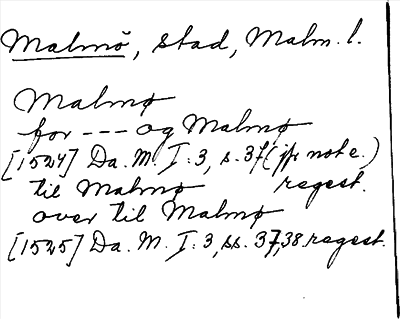 Malmö, stad, Malm. l.
Malmø
for --- og Malmø
[1524] Da. M. I:3, s. 37 (jfr note.)
til Malmø regest.
over til Malmø
[1525] Da. M. I:3, ss. 37, 38 regest.